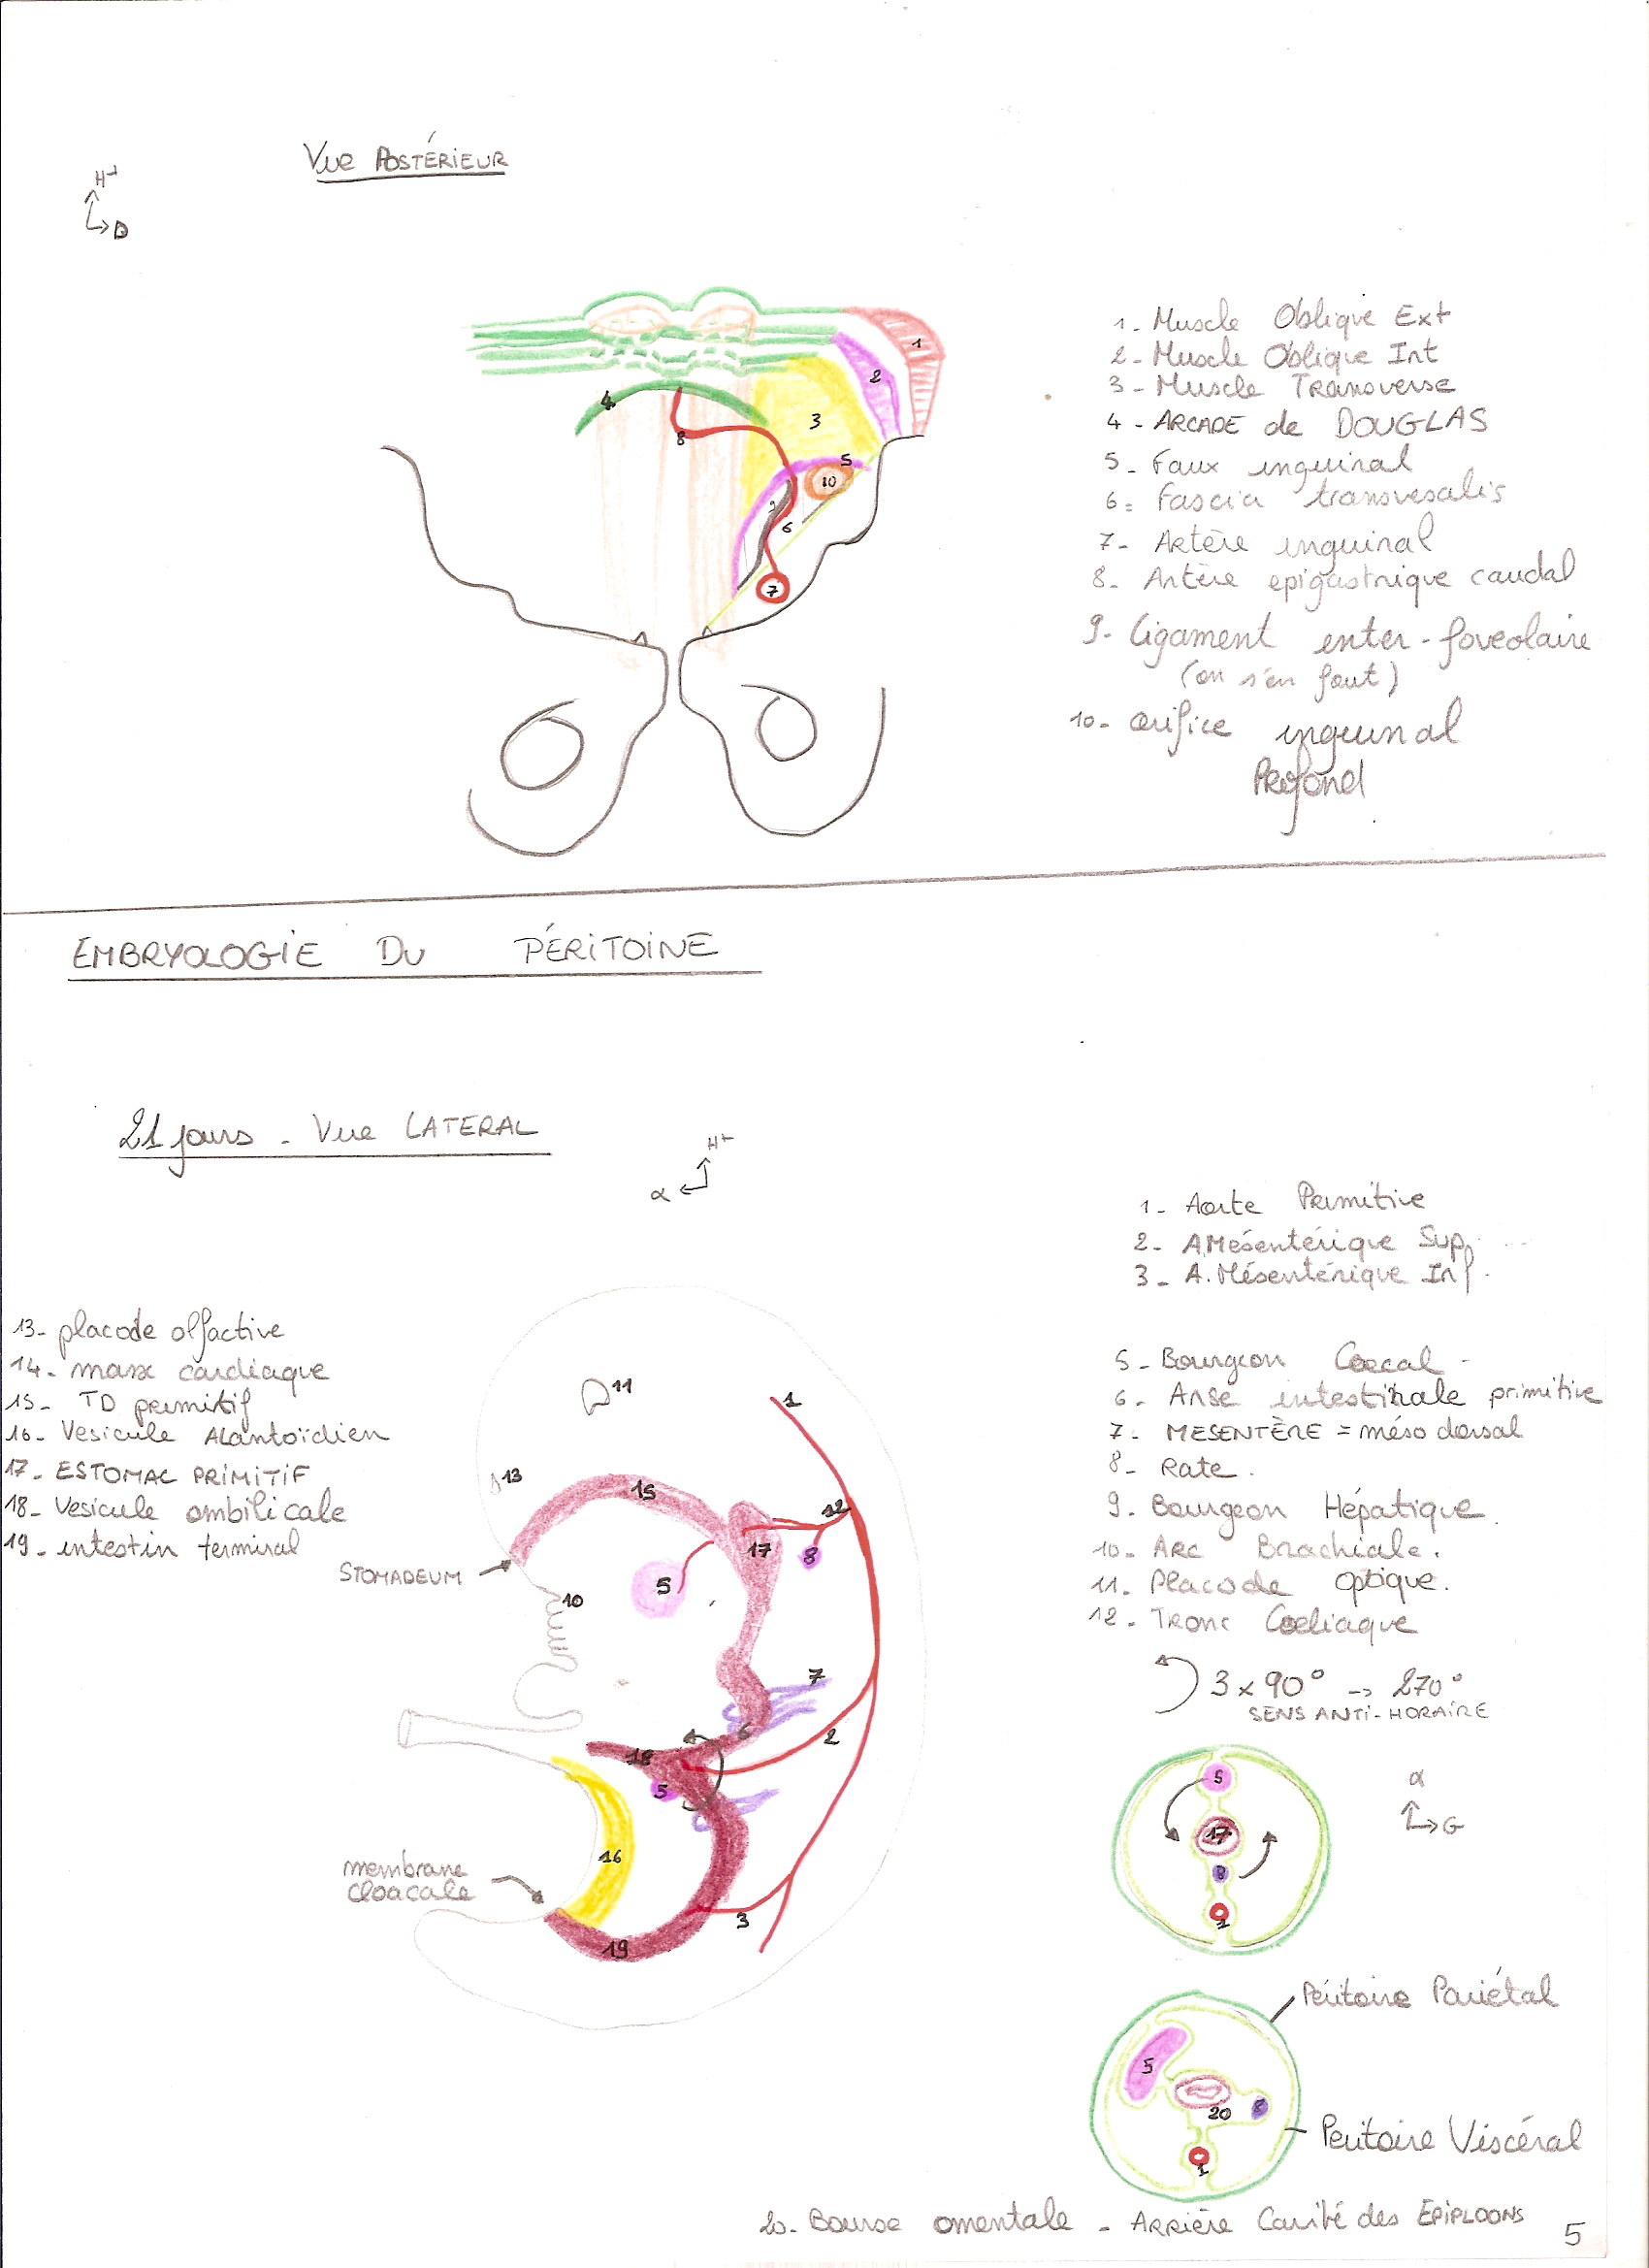 Vue POSTÉRIEUR
H+
D
1
2
3
4
5
6
7
8
9
10
1. Muscle Oblique Ext
2. Muscle Oblique Int
3 - Muscle Transverse
4 - ARCADE de DOUGLAS
5 - Faux inguinal
6 = Fascia transvesalis
7 - Artère inguinal
8 - Artère epigastrique caudal
9 - Ligament enter-foveolaire
(on s'en fout)
10 - orifice inguinal
Profond
EMBRYOLOGIE DU PÉRITOINE
21 jours - Vue LATERAL
H+
α
1 - Aorte Primitive
2 - A.Mésentérique Sup.
3 - A. Mésentérique Inf.
5 - Bourgeon Coecal -
6. Anse intestinale primitive
7. MESENTÈRE = méso dorsal
8 - Rate.
9. Bourgeon Hépatique.
10 - Arc Brachiale.
11. Placode optique.
12 - Tronc Coeliaque
3 x 90° -> 270°
SENS ANTI-HORAIRE
13 - placode olfactive
14 - masse cardiaque
15 - TD primitif
16 - Vesicule Alantoïdien
17 - ESTOMAC PRIMITIF
18 - Vesicule ombilicale
19 - intestin terminal
STOMADEUM
membrane
cloacale
11
1
13
15
12
17
8
5
10
7
6
2
18
5
16
3
19
α
G
5
17
8
1
Péritoine Pariétal
5
20
8
1
Peritoine Viscéral
20 - Bourse omentale - Arrière Cavité des EPIPLOONS
5